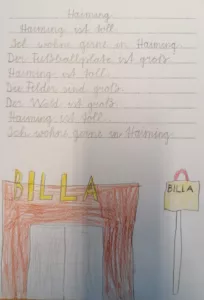 Haiming
Haiming ist toll.
Ich wohne gerne in Haiming.
Der Fußballplatz ist groß.
Haiming ist toll.
Die Felder sind groß.
Der Wald ist groß.
Haiming ist toll.
Ich wohne gerne in Haiming.
BILLA
BILLA